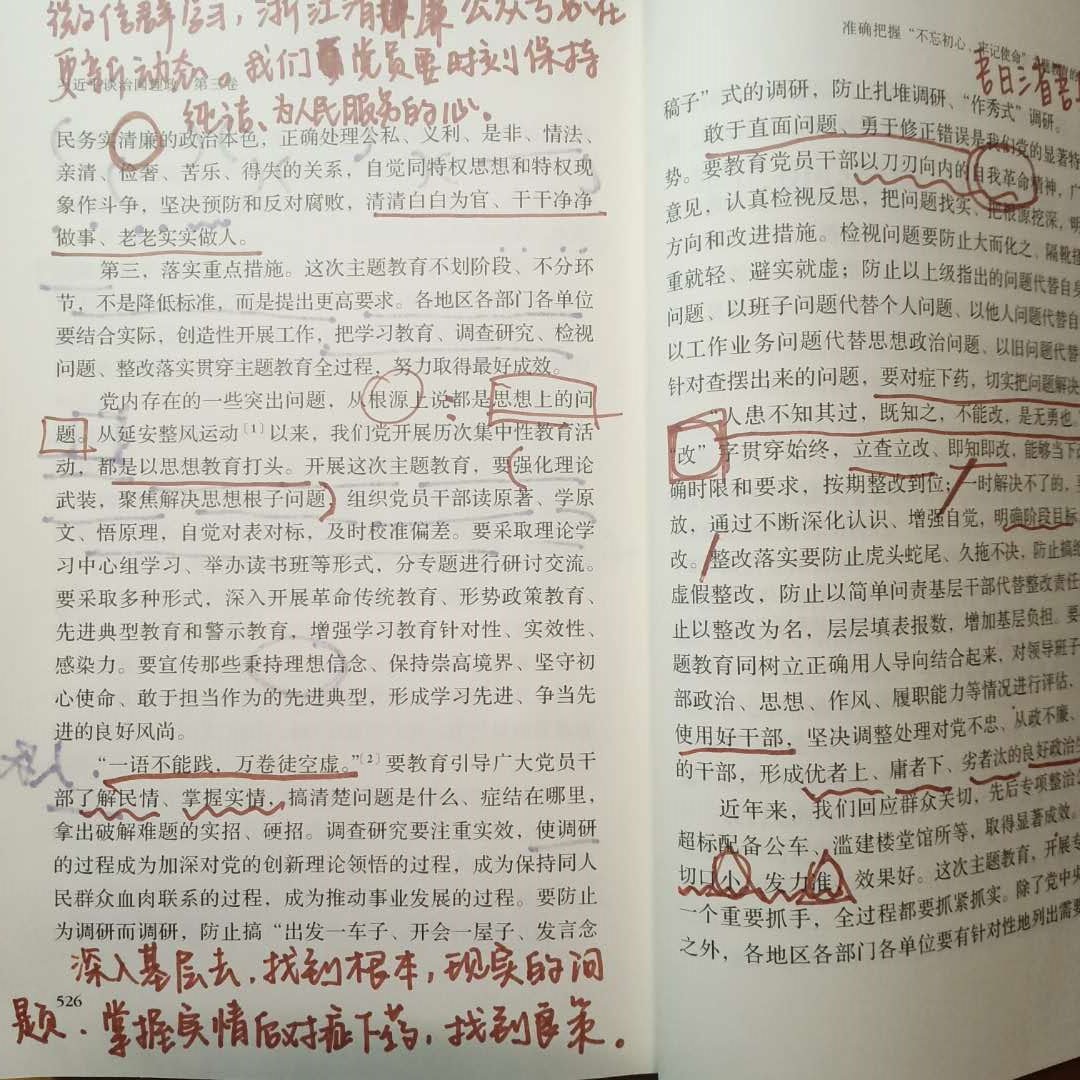 微信群学习，浙江省清廉公众号必在
更新动态。我们党员要时刻保持
纯洁、为人民服务的心。
近平谈治国理政 第三卷
民务实清廉的政治本色，正确处理公私、义利、是非、情法、
亲清、俭奢、苦乐、得失的关系，自觉同特权思想和特权现
象作斗争，坚决预防和反对腐败，清清白白为官、干干净净
做事、老老实实做人。
第三，落实重点措施。这次主题教育不划阶段、不分环
节，不是降低标准，而是提出更高要求。各地区各部门各单位
要结合实际，创造性开展工作，把学习教育、调查研究、检视
问题、整改落实贯穿主题教育全过程，努力取得最好成效。
党内存在的一些突出问题，从根源上说都是思想上的问
题。从延安整风运动〔1〕以来，我们党开展历次集中性教育活
动，都是以思想教育打头。开展这次主题教育，要强化理论
武装，聚焦解决思想根子问题，组织党员干部读原著、学原
文、悟原理，自觉对表对标，及时校准偏差。要采取理论学
习中心组学习、举办读书班等形式，分专题进行研讨交流。
要采取多种形式，深入开展革命传统教育、形势政策教育、
先进典型教育和警示教育，增强学习教育针对性、实效性、
感染力。要宣传那些秉持理想信念、保持崇高境界、坚守初
心使命、敢于担当作为的先进典型，形成学习先进、争当先
进的良好风尚。
“一语不能践，万卷徒空虚。”〔2〕要教育引导广大党员干
部了解民情、掌握实情，搞清楚问题是什么、症结在哪里，
拿出破解难题的实招、硬招。调查研究要注重实效，使调研
的过程成为加深对党的创新理论领悟的过程，成为保持同人
民群众血肉联系的过程，成为推动事业发展的过程。要防止
为调研而调研，防止搞“出发一车子、开会一屋子、发言念
深入基层去，找到根本，现实的问
题、掌握实情后对症下药，找到良策。
526
准确把握“不忘初心、牢记使命”主题教育的
吾日三省吾
稿子”式的调研，防止扎堆调研、“作秀式”调研。
敢于直面问题、勇于修正错误是我们党的显著特
势。要教育党员干部以刀刃向内的自我革命精神，广
意见，认真检视反思，把问题找实、把根源挖深，明
方向和改进措施。检视问题要防止大而化之、隔靴搔
重就轻、避实就虚；防止以上级指出的问题代替自身
问题、以班子问题代替个人问题、以他人问题代替自
以工作业务问题代替思想政治问题、以旧问题代替
针对查摆出来的问题，要对症下药，切实把问题解决
“人患不知其过，既知之，不能改，是无勇也。
“改”字贯穿始终，立查立改、即知即改，能够当下改
确时限和要求，按期整改到位；一时解决不了的，要
放，通过不断深化认识、增强自觉，明确阶段目标
改。整改落实要防止虎头蛇尾、久拖不决，防止搞纸
虚假整改，防止以简单问责基层干部代替整改责任
止以整改为名，层层填表报数，增加基层负担。要
题教育同树立正确用人导向结合起来，对领导班子
部政治、思想、作风、履职能力等情况进行评估，
使用好干部，坚决调整处理对党不忠、从政不廉、
的干部，形成优者上、庸者下、劣者汰的良好政治生
近年来，我们回应群众关切，先后专项整治
超标配备公车、滥建楼堂馆所等，取得显著成效。
切口小、发力准、效果好。这次主题教育，开展专
一个重要抓手，全过程都要抓紧抓实。除了党中央
之外，各地区各部门各单位要有针对性地列出需要